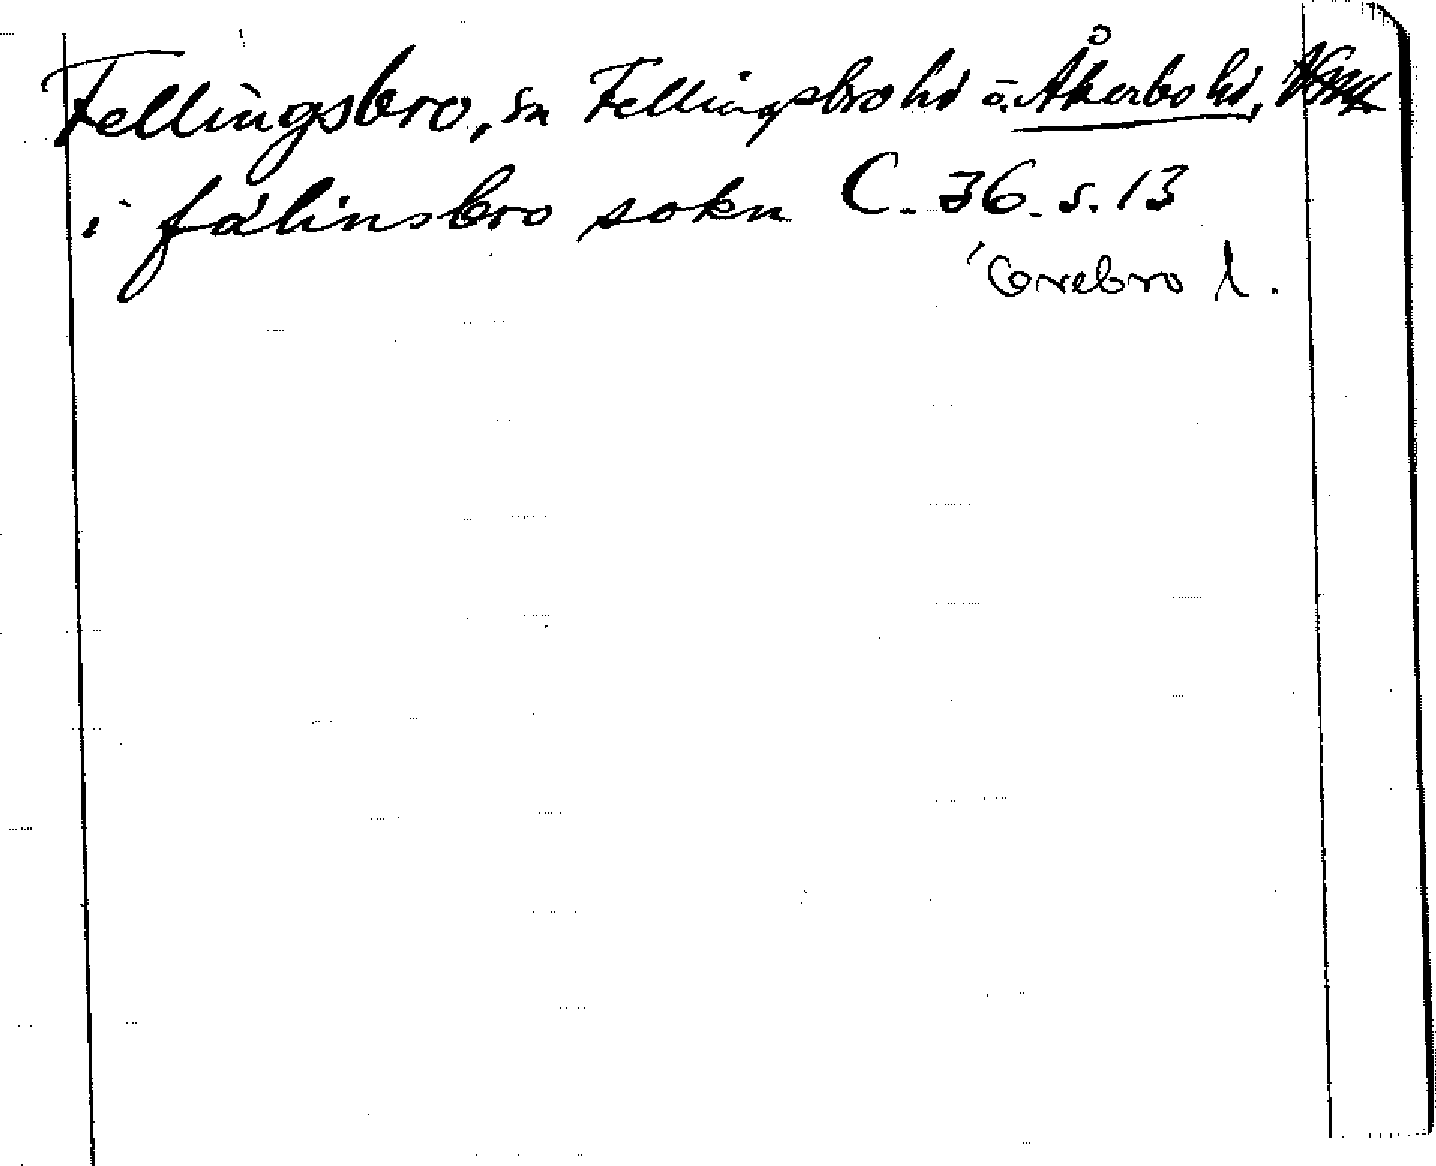 Fellingsbro, sn Fellingsbro hd o. Åkerbo hd,
i fálinsbro sokn C. 36. s. 13
Örebro l.